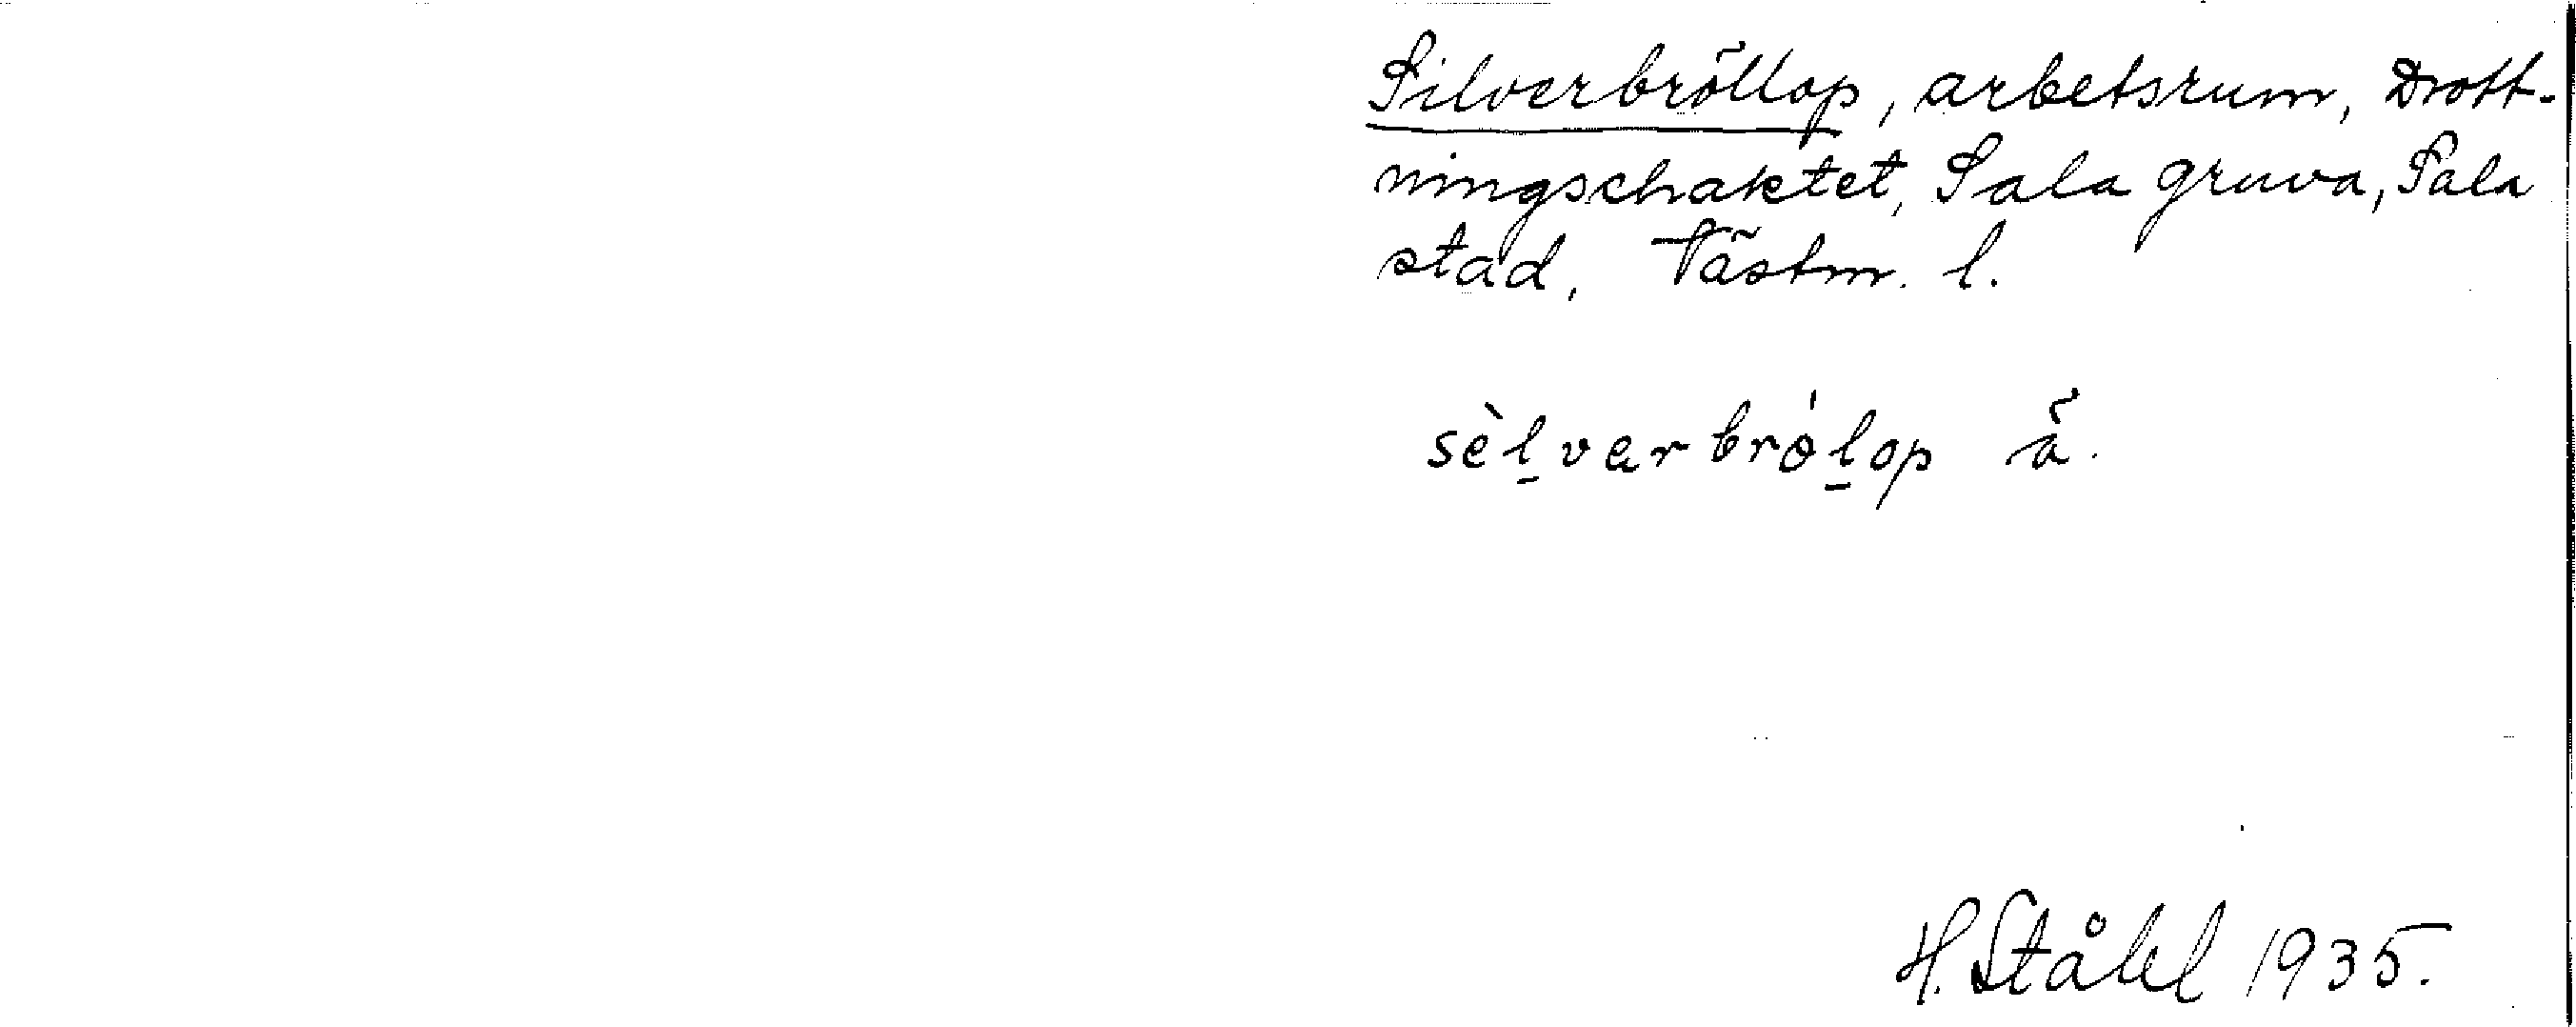 Silverbröllop, arbetsrum, Drott-
ningschaktet, Sala gruva, Sala
stad, Västm. l.
sèl̠verbról̠op ä.
H. Ståhl 1935.